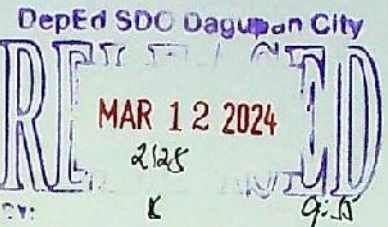 DepEd SDO Dagupan City
RELEASED
MAR 12 2024
2128
BY: